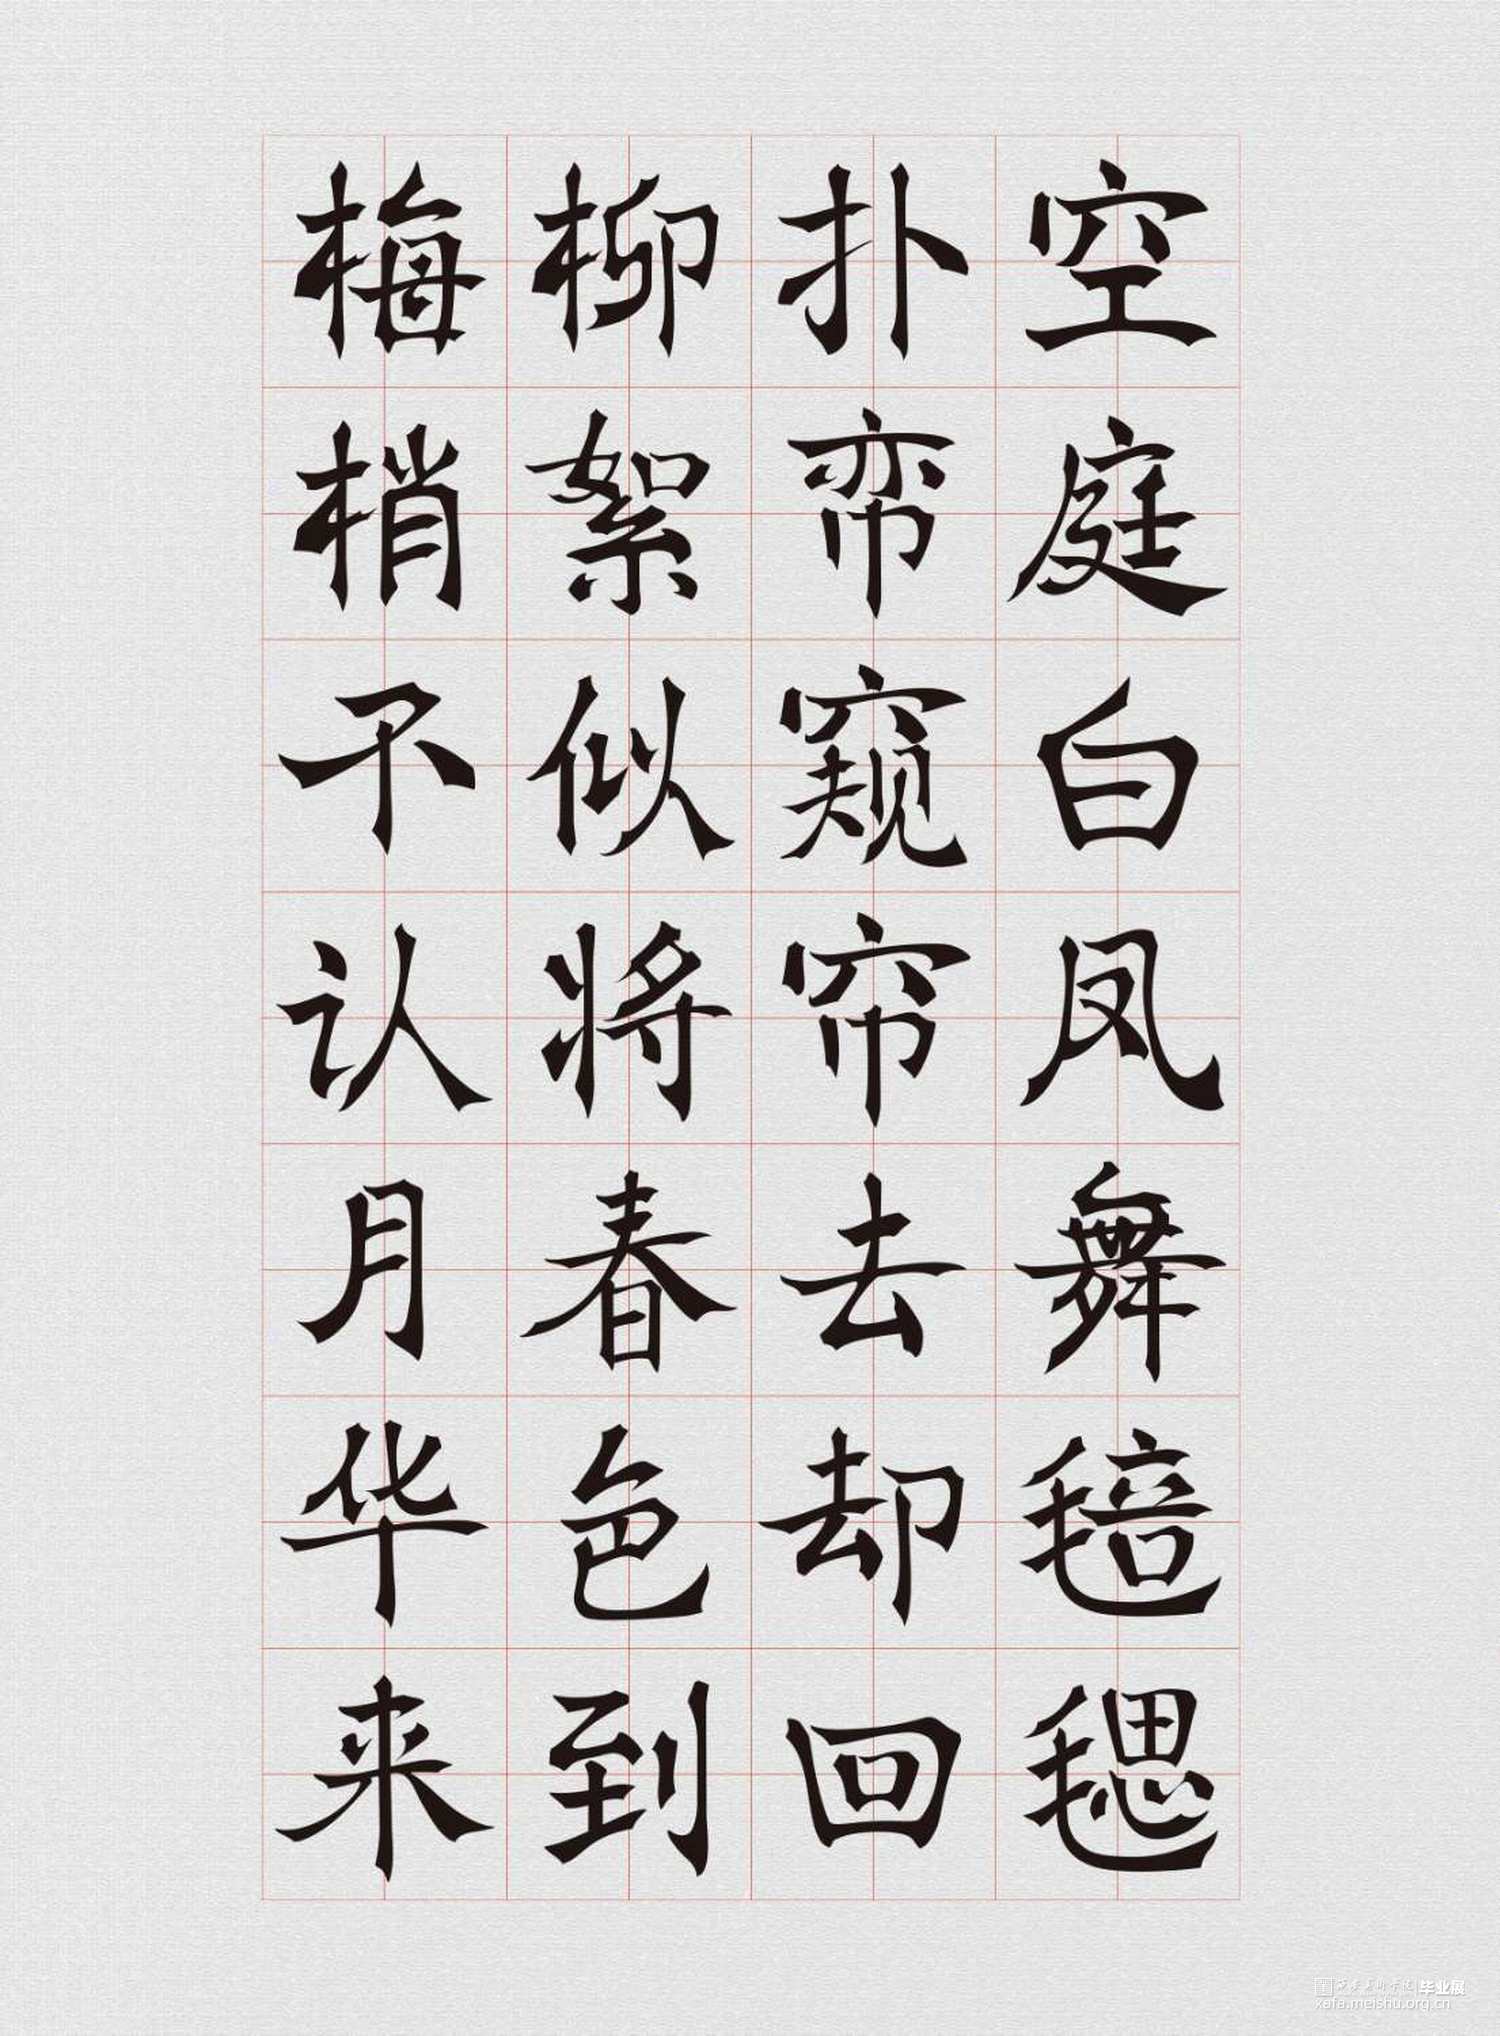 空庭白凤舞毰毸
扑帟窥帘去却回
柳絮似将春色到
梅梢不认月华来
西安美术学院 毕业展
xafa.meishu.org.cn